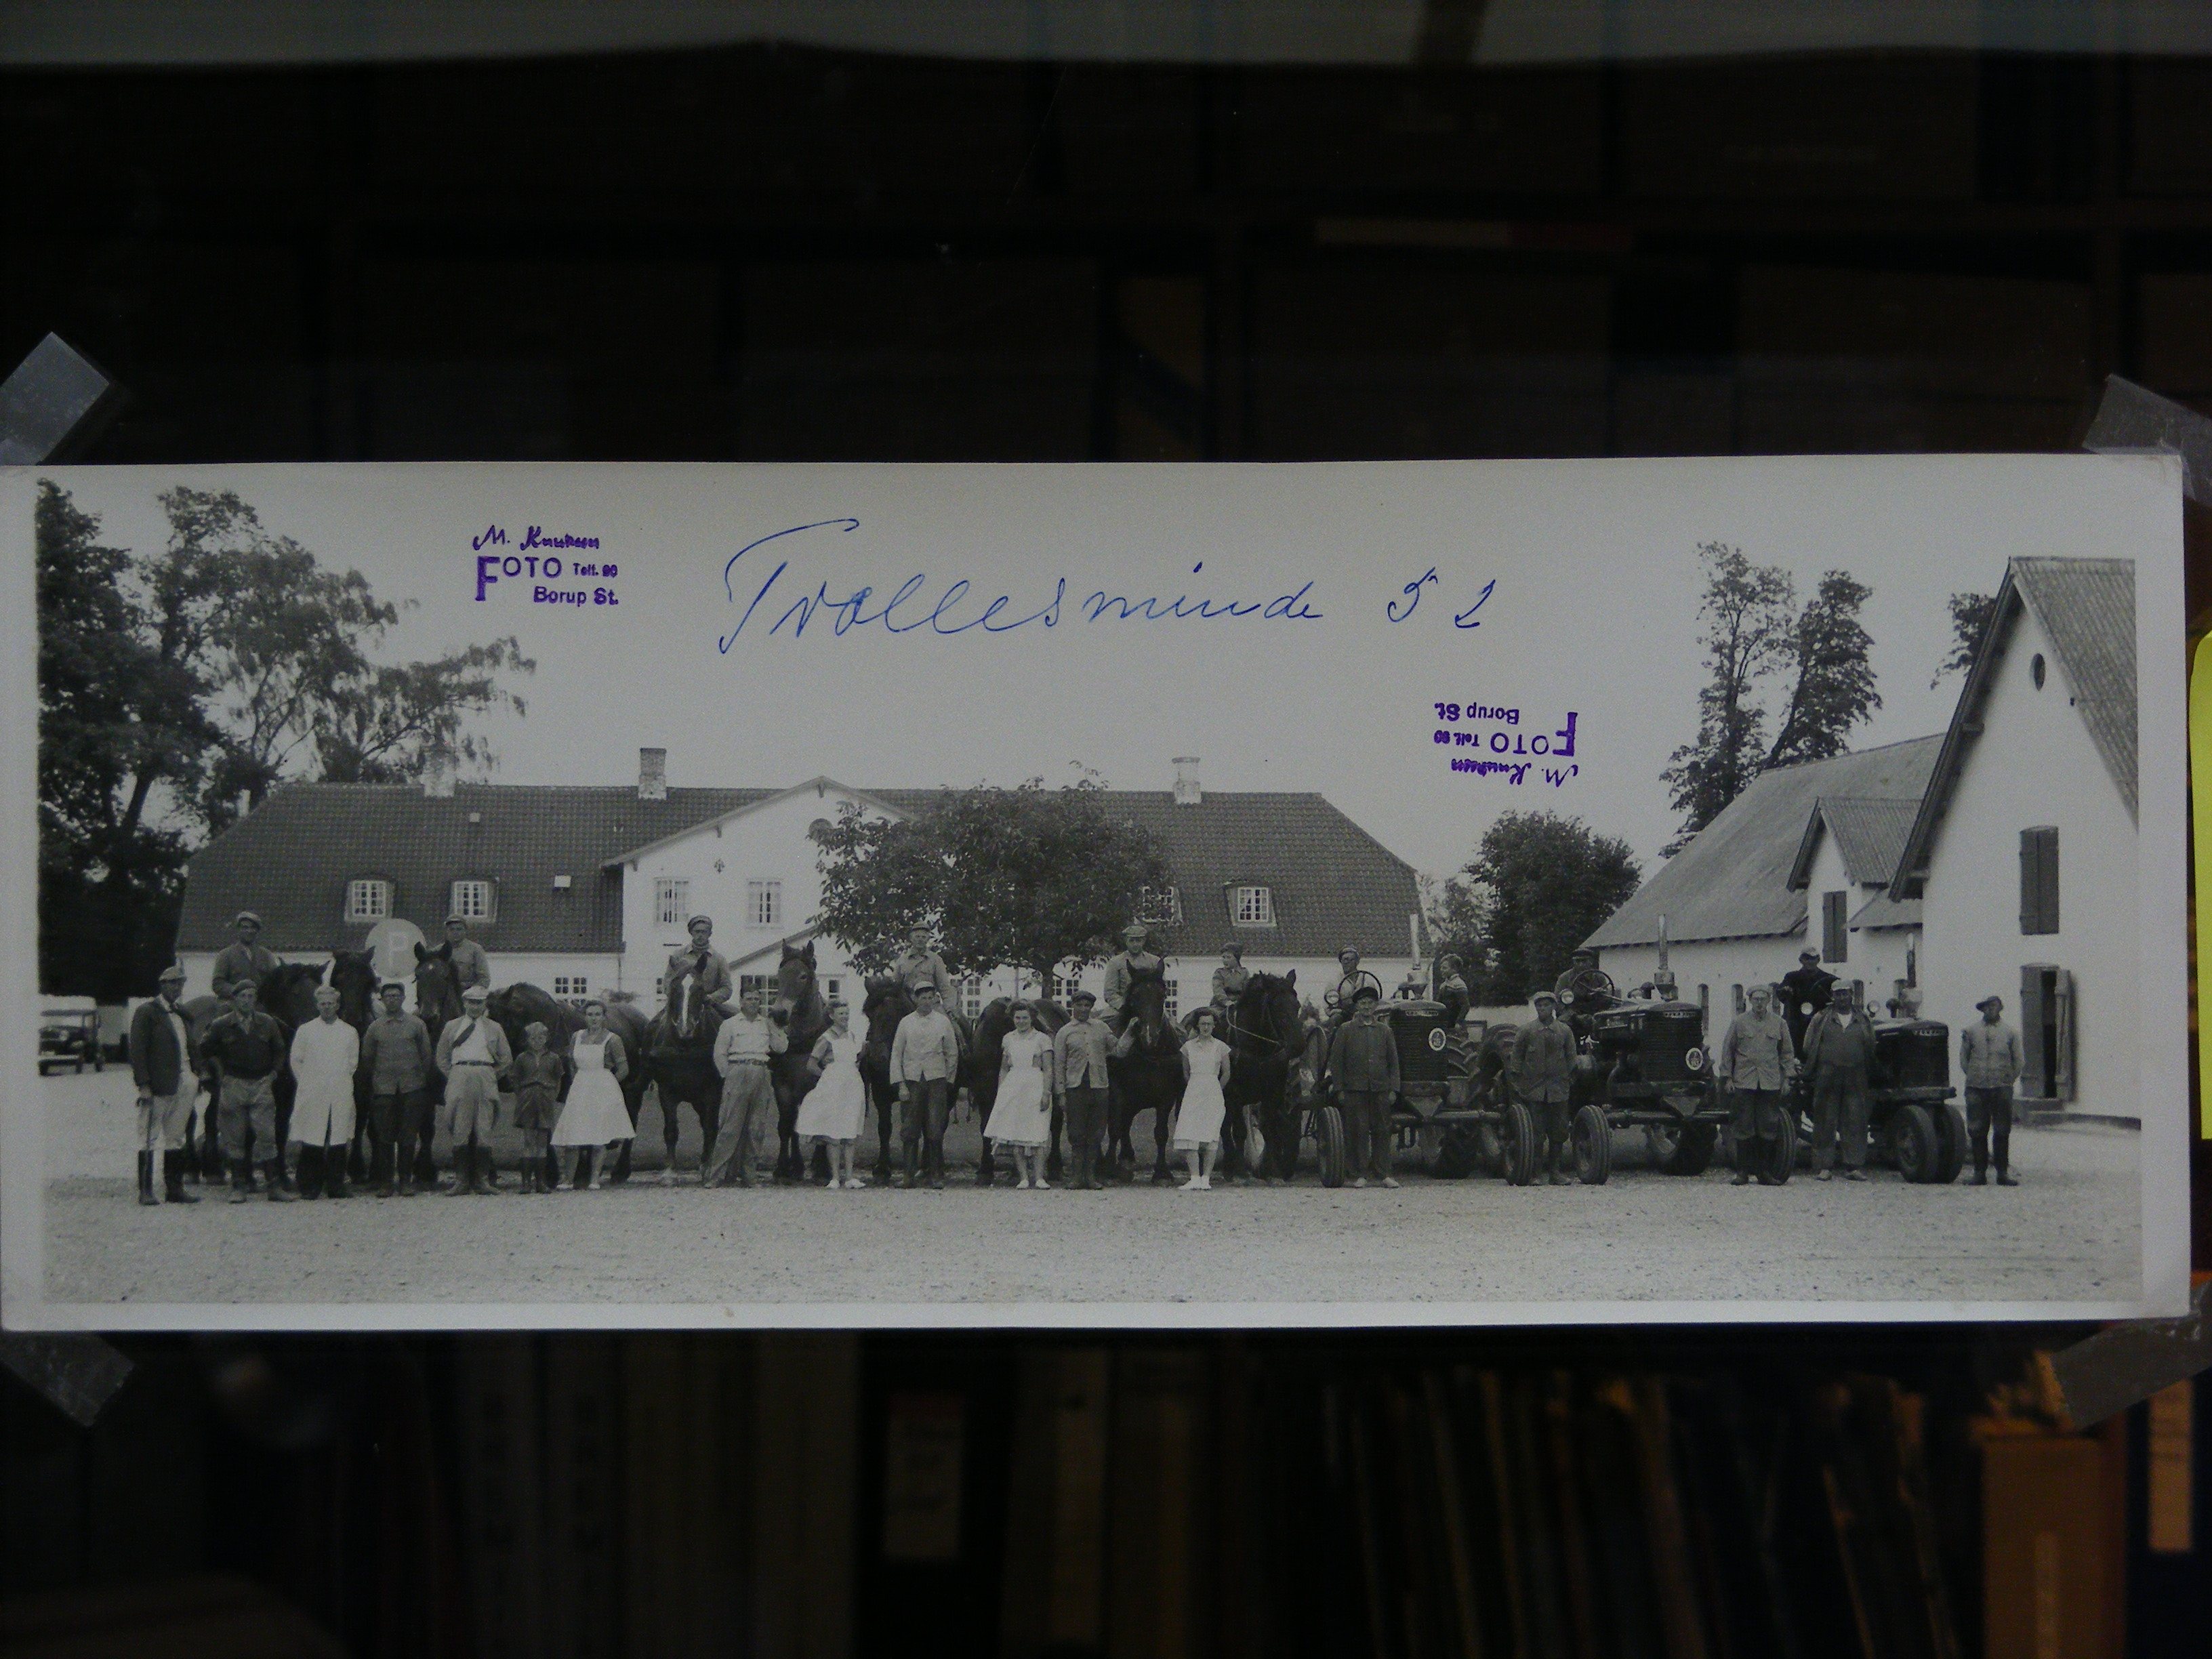 M. Knudsen
FOTO Telf. 90
Borup St.
Trollesminde 52
M. Knudsen
FOTO Telf. 90
Borup St.
P